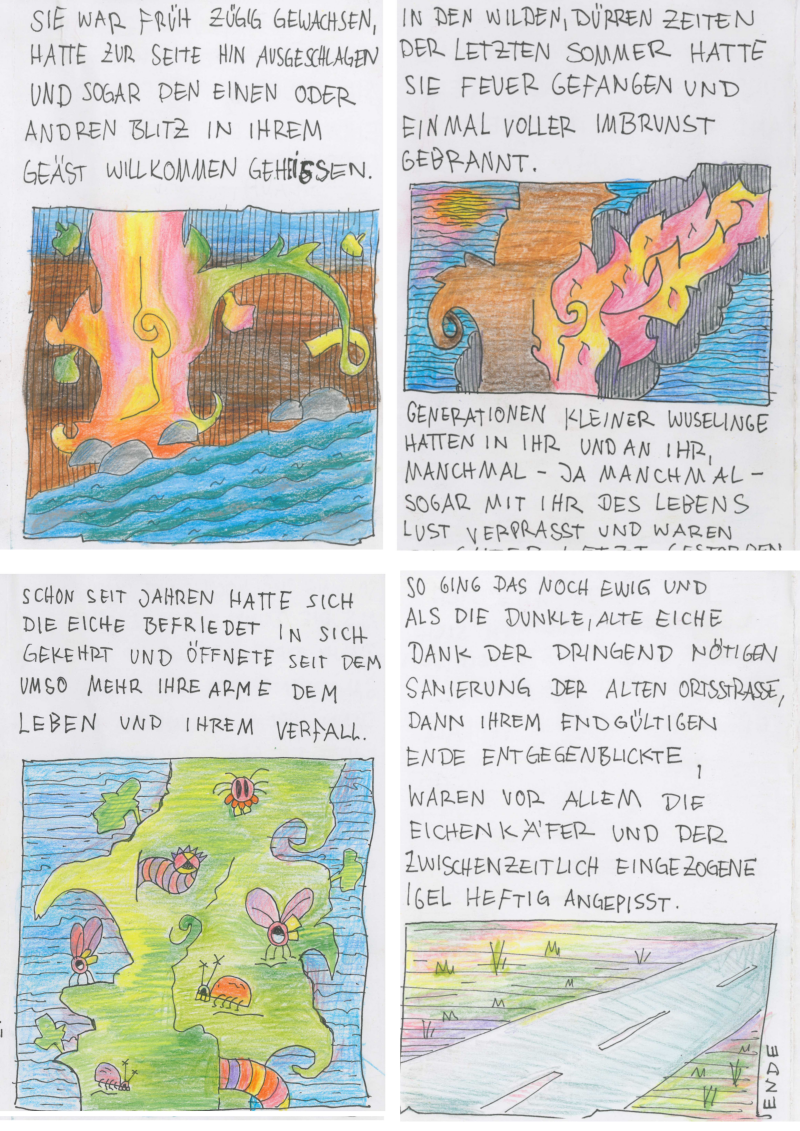 SIE WAR FRÜH ZÜGIG GEWACHSEN,
HATTE ZUR SEITE HIN AUSGESCHLAGEN
UND SOGAR DEN EINEN ODER
ANDREN BLITZ IN IHREM
GEÄST WILLKOMMEN GEHEISSEN.
IN DEN WILDEN, DÜRREN ZEITEN
DER LETZTEN SOMMER HATTE
SIE FEUER GEFANGEN UND
EINMAL VOLLER IMBRUNST
GEBRANNT.
GENERATIONEN KLEINER WUSELINGE
HATTEN IN IHR UND AN IHR,
MANCHMAL - JA MANCHMAL -
SOGAR MIT IHR DES LEBENS
LUST VERPRASST UND WAREN
SCHON SEIT JAHREN HATTE SICH
DIE EICHE BEFRIEDET IN SICH
GEKEHRT UND ÖFFNETE SEIT DEM
UMSO MEHR IHRE ARME DEM
LEBEN UND IHREM VERFALL.
SO GING DAS NOCH EWIG UND
ALS DIE DUNKLE, ALTE EICHE
DANK DER DRINGEND NÖTIGEN
SANIERUNG DER ALTEN ORTSSTRASSE,
DANN IHREM ENDGÜLTIGEN
ENDE ENTGEGENBLICKTE,
WAREN VOR ALLEM DIE
EICHENKÄFER UND DER
ZWISCHENZEITLICH EINGEZOGENE
IGEL HEFTIG ANGEPISST.
ENDE